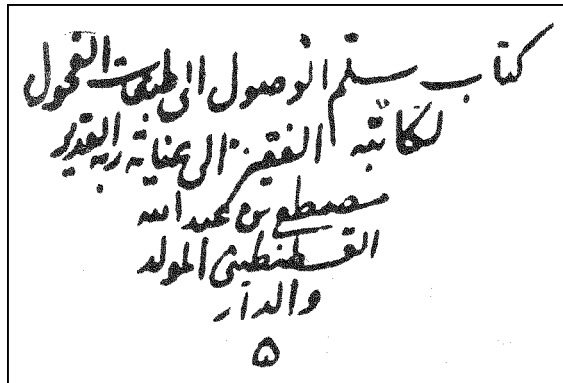 كتاب سلم الوصول الى طبقات الفحول
لكاتبه الفقير الى عناية ربه القدير
مصطفى بن عبد الله
القسطنطيني المولد
والدار
ه